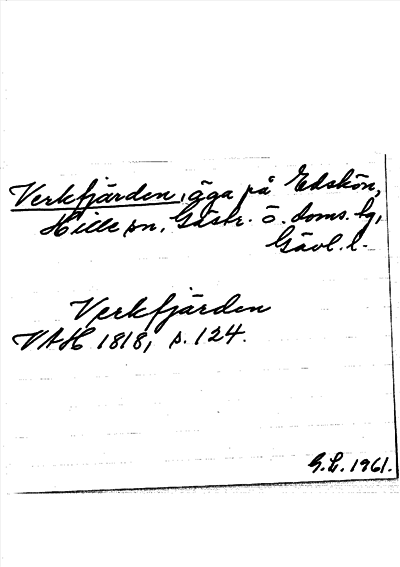 Verkfjärden, äga på Edskön,
Hille sn, Gästr. ö. doms. hg,
Gävl. l.
Verkfjärden
VAH 1818, s. 124.
G.L. 1961.